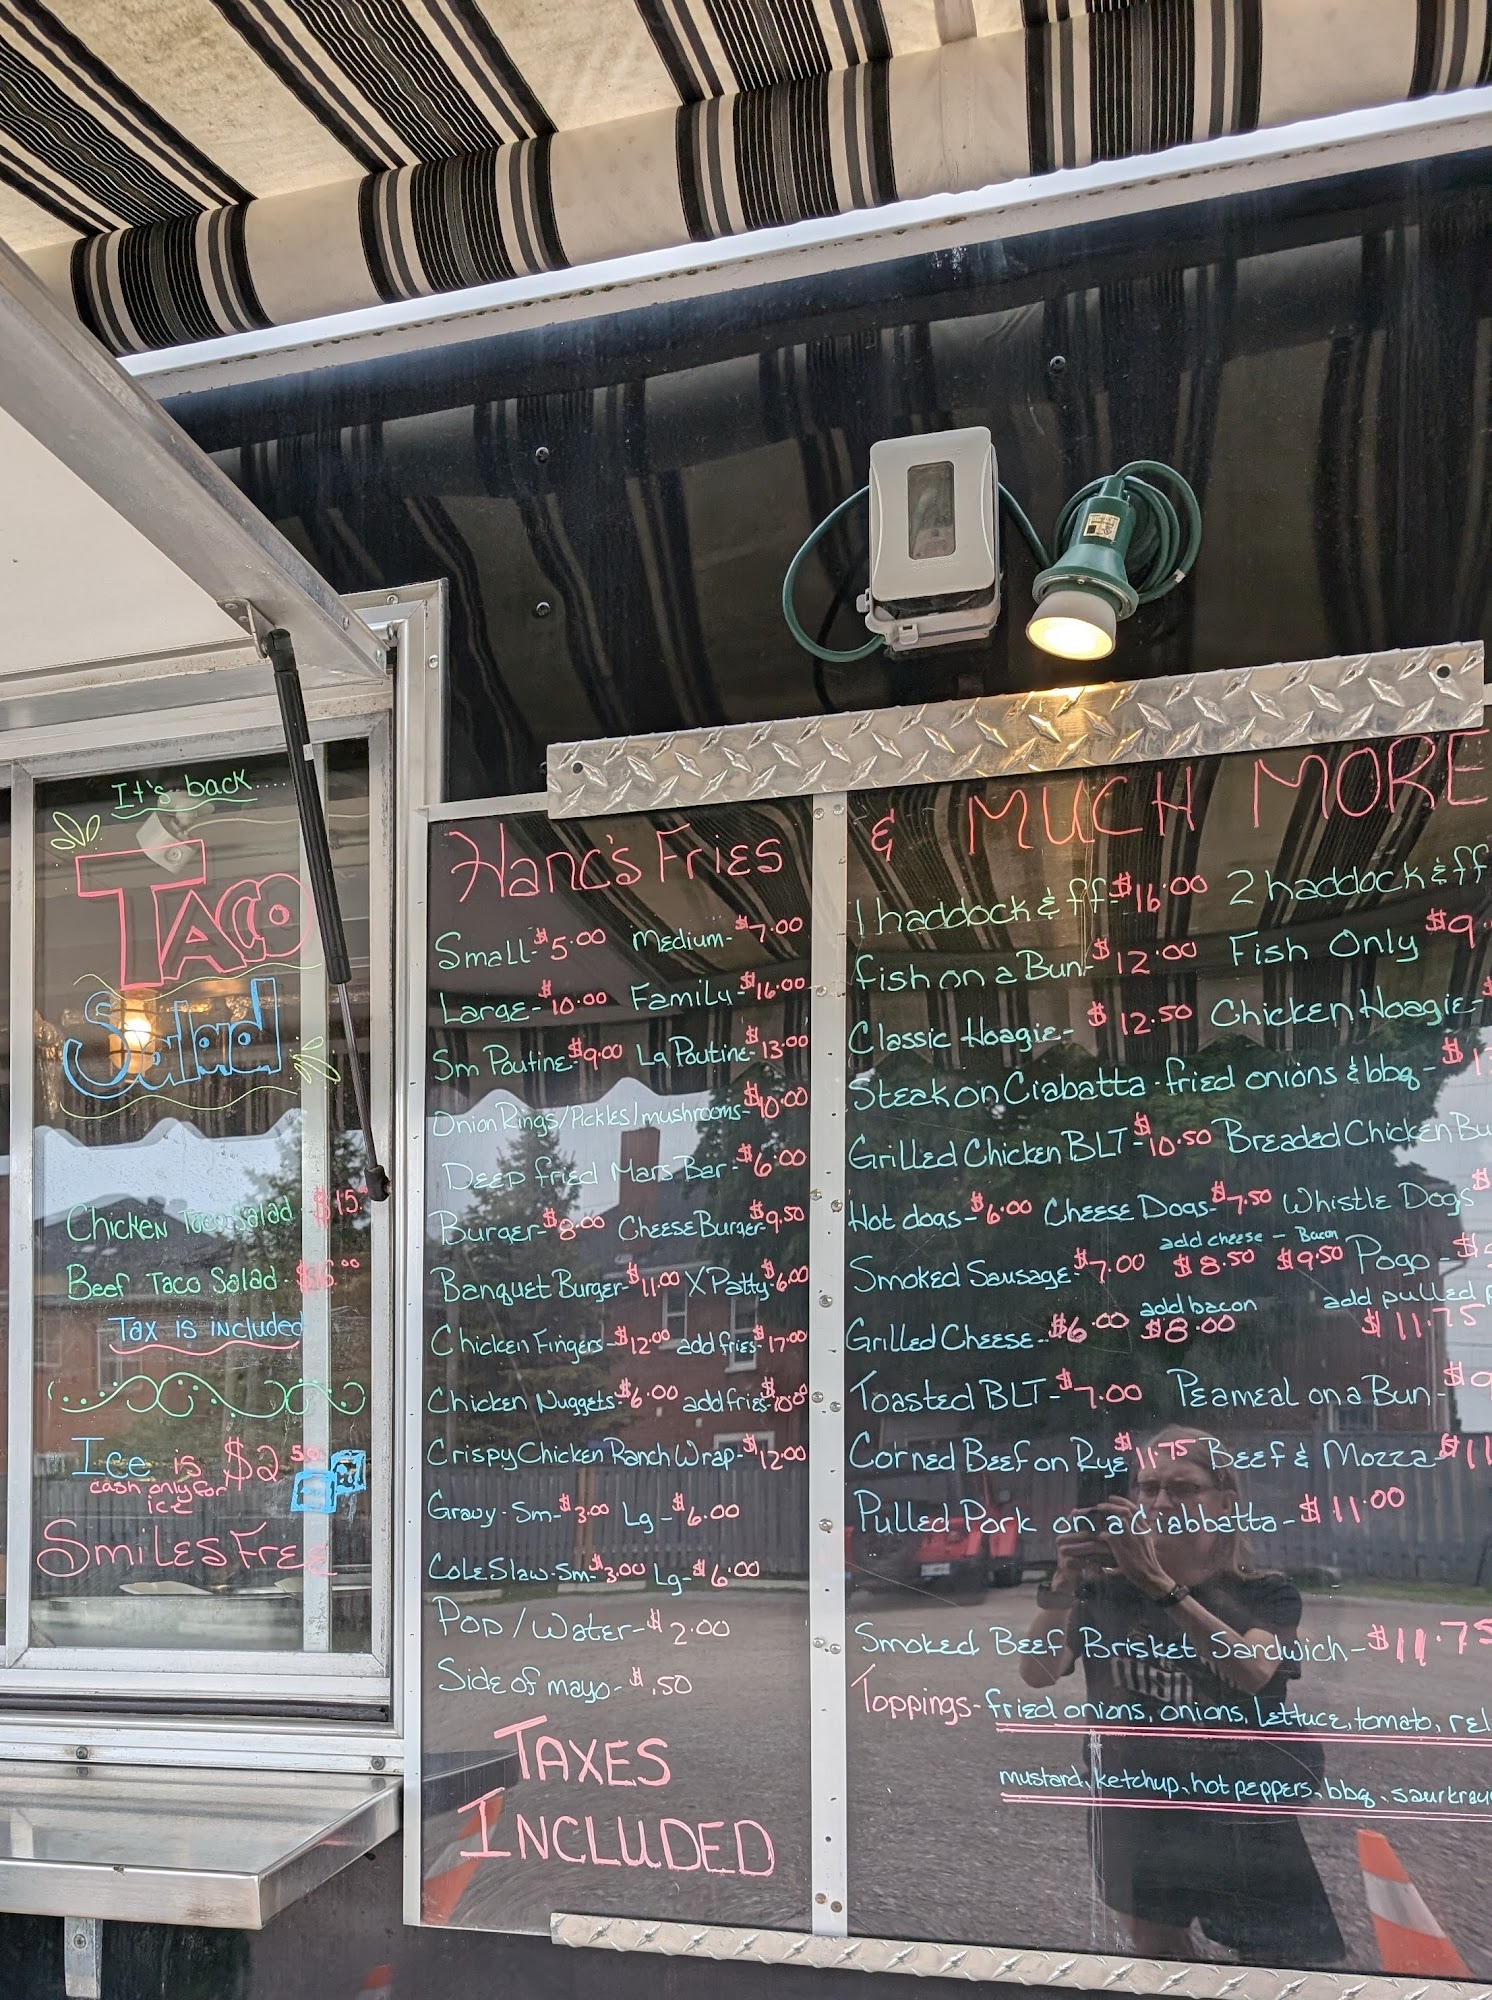 It's back....
TACO
Salad
Chicken Taco Salad - $15.
Beef Taco Salad - $16.00
Tax is included
Ice is $2.50
cash only for
ice
Smiles Free
Hanc's Fries
Small - $5.00 Medium - $7.00
Large - $10.00 Family - $16.00
Sm Poutine $9.00 Lg Poutine - $13.00
Onion Rings/Pickles/mushrooms - $10.00
Deep fried Mars Bar - $6.00
Burger - $8.00 Cheese Burger - $9.50
Banquet Burger - $11.00 X Patty $6.00
Chicken Fingers - $12.00 add fries - $17.00
Chicken Nuggets - $6.00 add fries -
Crispy Chicken Ranch Wrap - $12.00
Gravy - Sm - $3.00 Lg - $6.00
Cole Slaw - Sm - $3.00 Lg - $6.00
Pop / Water - $2.00
Side of mayo - $.50
TAXES
INCLUDED
& MUCH MORE
1 haddock & ff - $16.00 2 haddock & ff
Fish on a Bun - $12.00 Fish Only $9.
Classic Hoagie - $12.50 Chicken Hoagie -
Steak on Ciabatta - fried onions & bbq - $1
Grilled Chicken BLT - $10.50 Breaded Chicken Bu
Hot dogs - $6.00 Cheese Dogs - $7.50 Whistle Dogs $
add cheese - Bacon
Smoked Sausage - $7.00 $8.50 $9.50 Pogo - $
add bacon add pulled p
Grilled Cheese - $6.00 $8.00 $11.75
Toasted BLT - $7.00 Peameal on a Bun - $9
Corned Beef on Rye $11.75 Beef & Mozza - $11
Pulled Pork on a Ciabbatta - $11.00
Smoked Beef Brisket Sandwich - $11.75
Toppings - fried onions, onions, lettuce, tomato, rel
mustard, ketchup, hot peppers, bbq, saurkrau